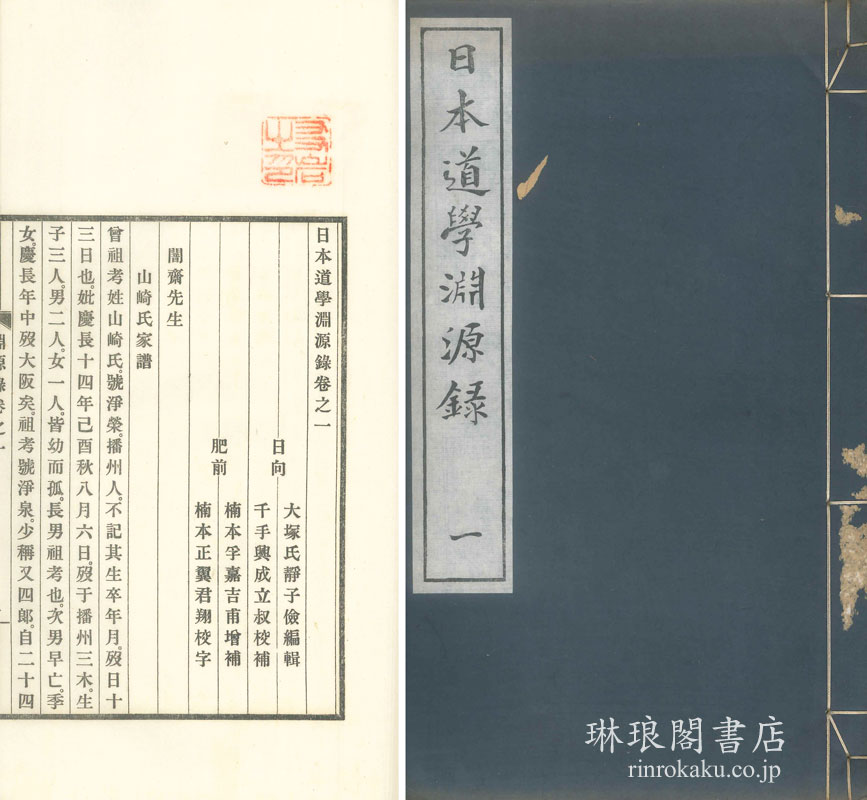 日本道學淵源録 一
琳琅閣書店
rinrokaku.co.jp
日本道學淵源錄卷之一
日向
大塚氏靜子儉編輯
千手興成立叔校補
肥前
楠本孚嘉吉甫增補
楠本正翼君翔校字
闇齋先生
山崎氏家譜
曾祖考姓山崎氏。號淨榮。播州人。不記其生卒年月。歿日十
三日也。妣慶長十四年己酉秋八月六日。歿于播州三木。生
子三人。男二人。女一人。皆幼而孤。長男祖考也。次男早亡。季
女。慶長年中歿大阪矣。祖考號淨泉。少稱又四郞。自二十四
淵源錄卷之一
一